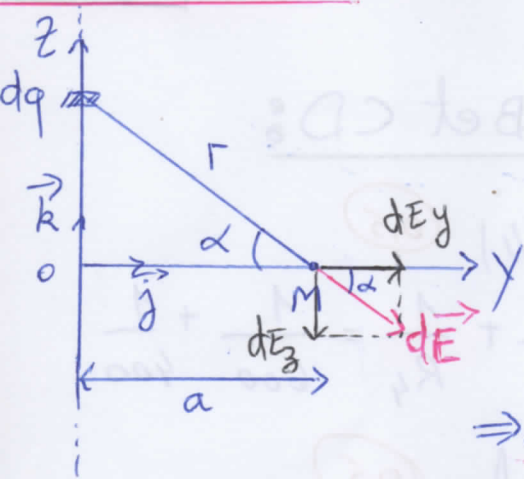 Z
dq
r
k
α
dEy
o
j
M
α
Y
dEz
dE
a
⇒